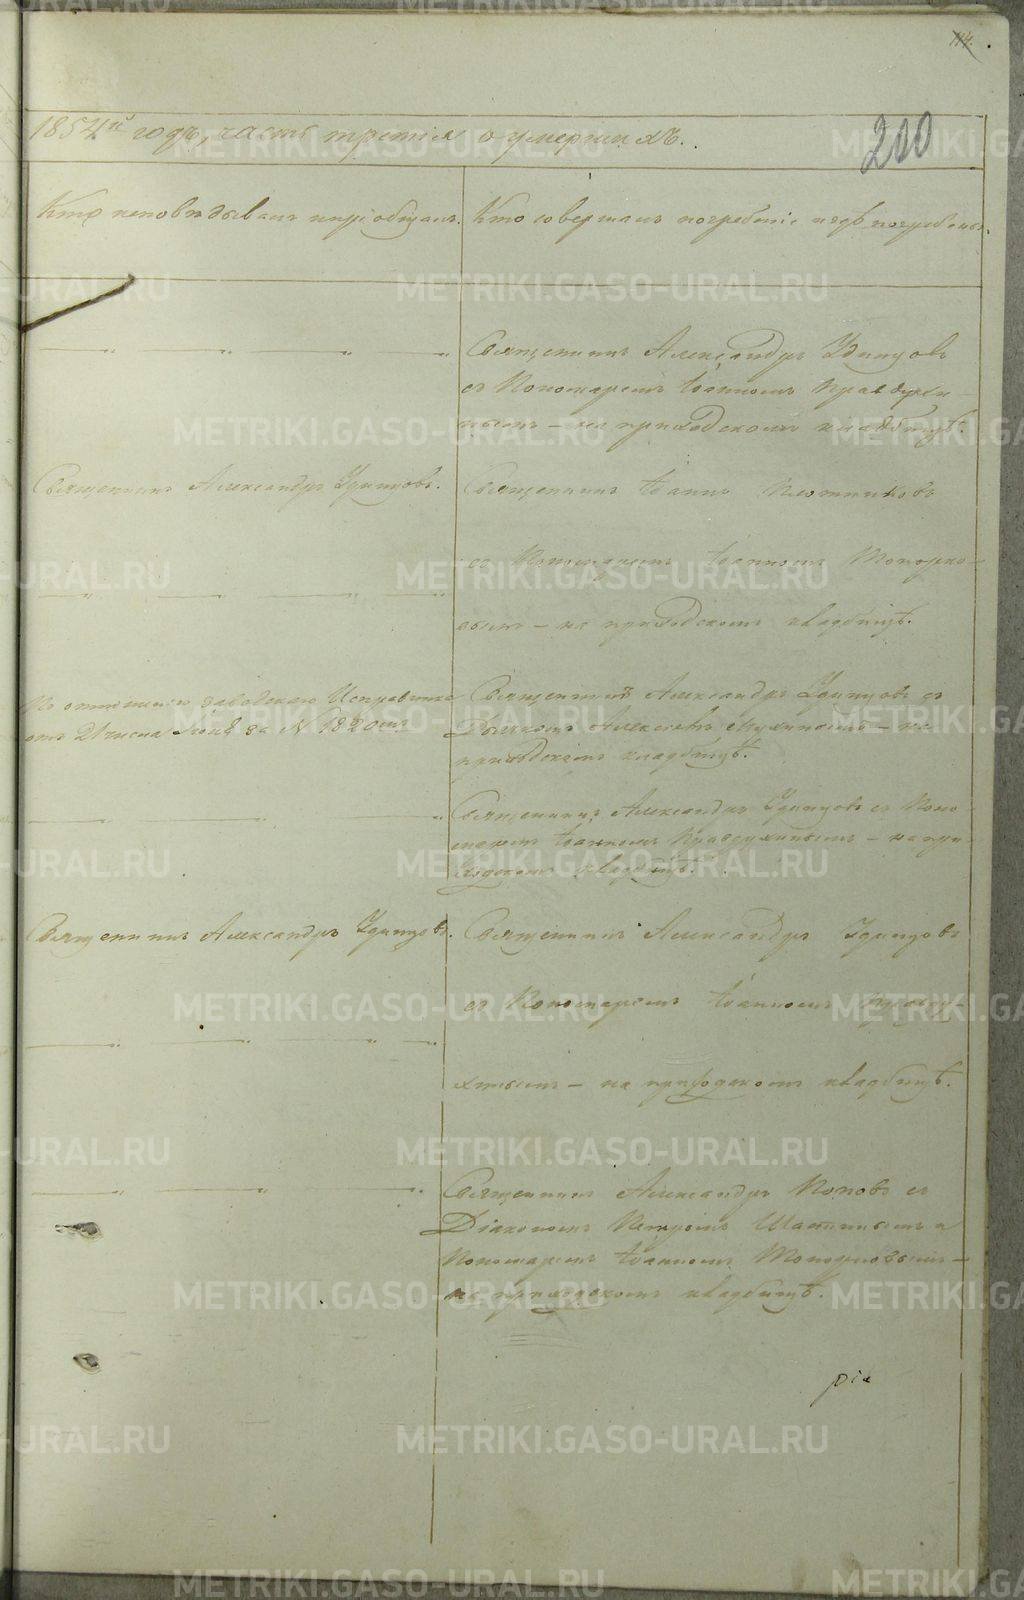 114.
1854й годъ, часть третія о умершихъ.
200
Кто исповѣдывалъ и пріобщалъ.
Кто совершалъ погребеніе и гдѣ погребены.
Священникъ Александръ Удинцовъ
съ Пономаремъ Іоанномъ Правдухи-
нымъ – на приходскомъ кладбищѣ.
Священникъ Александръ Удинцовъ.
Священникъ Іоаннъ Плотниковъ
съ Пономаремъ Іоанномъ Топорко-
вымъ – на приходскомъ кладбищѣ.
По отношенію заводскаго Исправника
отъ 21 числа за № 1820мъ
Священникъ Александръ Удинцовъ съ
Дьячкомъ – на
приходскомъ кладбищѣ.
Священникъ Александръ Удинцовъ съ Поно-
маремъ Іоанномъ Правдухинымъ – на при-
ходскомъ кладбищѣ.
Священникъ Александръ Удинцовъ.
Священникъ Александръ Удинцовъ
съ Пономаремъ Іоанномъ Правду-
хинымъ – на приходскомъ кладбищѣ.
Священникъ Александръ Поповъ съ
Діакономъ Петромъ и
Пономаремъ Іоанномъ Топорковымъ –
на приходскомъ кладбищѣ.
METRIKI.GASO-URAL.RU